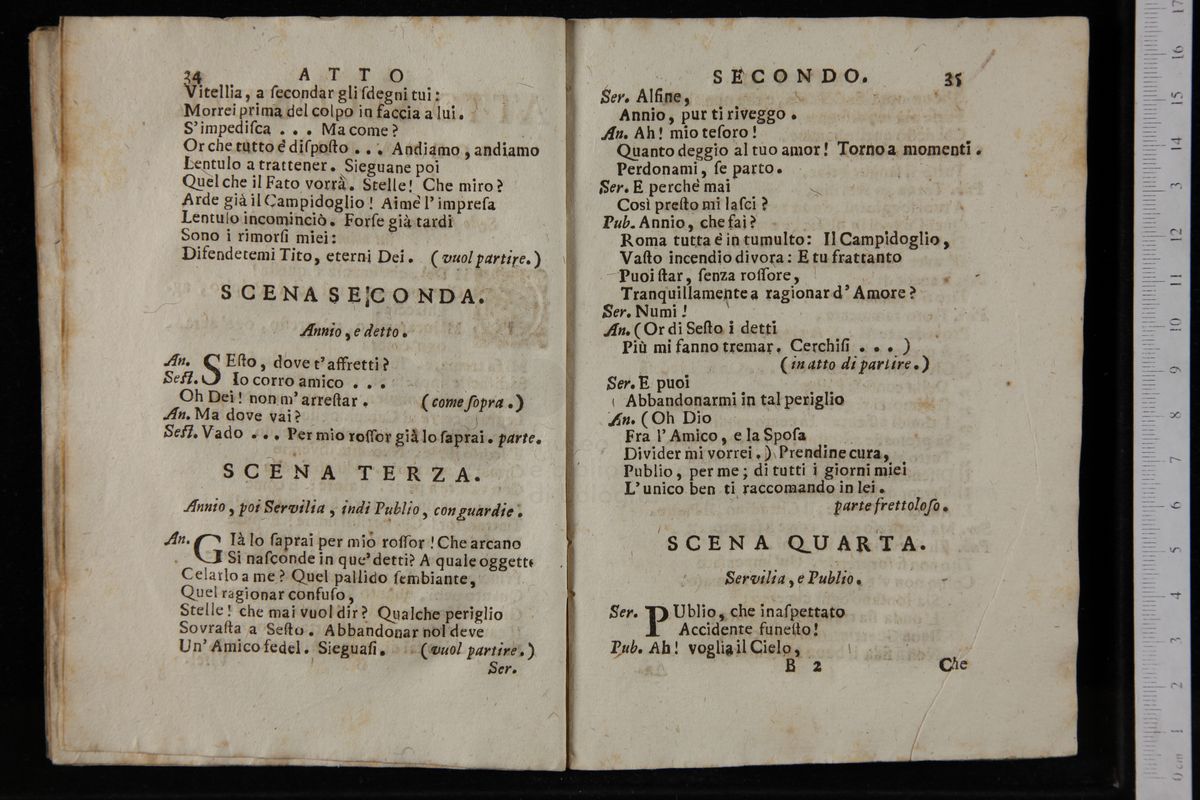 34 ATTO
Vitellia, a ſecondar gli ſdegni tui:
Morrei prima del colpo in faccia a lui.
S'impediſca . . . Ma come?
Or che tutto è diſpoſto . . . Andiamo, andiamo
Lentulo a trattener. Sieguane poi
Quel che il Fato vorrà. Stelle! Che miro?
Arde già il Campidoglio! Aimè l'impreſa
Lentulo incominciò. Forſe già tardi
Sono i rimorſi miei:
Difendetemi Tito, eterni Dei. (vuol partire.)
SCENA SECONDA.
Annio, e detto.
An. SEſto, dove t'affretti?
Seſt. Io corro amico . . .
Oh Dei! non m'arreſtar. (come ſopra.)
An. Ma dove vai?
Seſt. Vado . . . Per mio roſſor già lo ſaprai. parte.
SCENA TERZA.
Annio, poi Servilia, indi Publio, con guardie.
An. GIà lo ſaprai per mio roſſor! Che arcano
Si naſconde in que' detti? A quale oggett
Celarlo a me? Quel pallido ſembiante,
Quel ragionar confuſo,
Stelle! che mai vuol dir? Qualche periglio
Sovraſta a Seſto. Abbandonar nol deve
Un' Amico fedel. Sieguaſi. (vuol partire.)
Ser.
SECONDO. 35
Ser. Alfine,
Annio, pur ti riveggo.
An. Ah! mio teſoro!
Quanto deggio al tuo amor! Torno a momenti.
Perdonami, ſe parto.
Ser. E perchè mai
Così preſto mi laſci?
Pub. Annio, che fai?
Roma tutta è in tumulto: Il Campidoglio,
Vaſto incendio divora: E tu frattanto
Puoi ſtar, ſenza roſſore,
Tranquillamente a ragionar d'Amore?
Ser. Numi!
An. (Or di Seſto i detti
Più mi fanno tremar. Cerchiſi . . . )
(in atto di partire.)
Ser. E puoi
Abbandonarmi in tal periglio
An. (Oh Dio
Fra l'Amico, e la Spoſa
Divider mi vorrei.) Prendine cura,
Publio, per me; di tutti i giorni miei
L'unico ben ti raccomando in lei.
parte frettoloſo.
SCENA QUARTA.
Servilia, e Publio.
Ser. PUblio, che inaſpettato
Accidente funeſto!
Pub. Ah! voglia il Cielo,
B 2 Che
0 cm 1 2 3 4 5 6 7 8 9 10 11 12 13 14 15 16 17